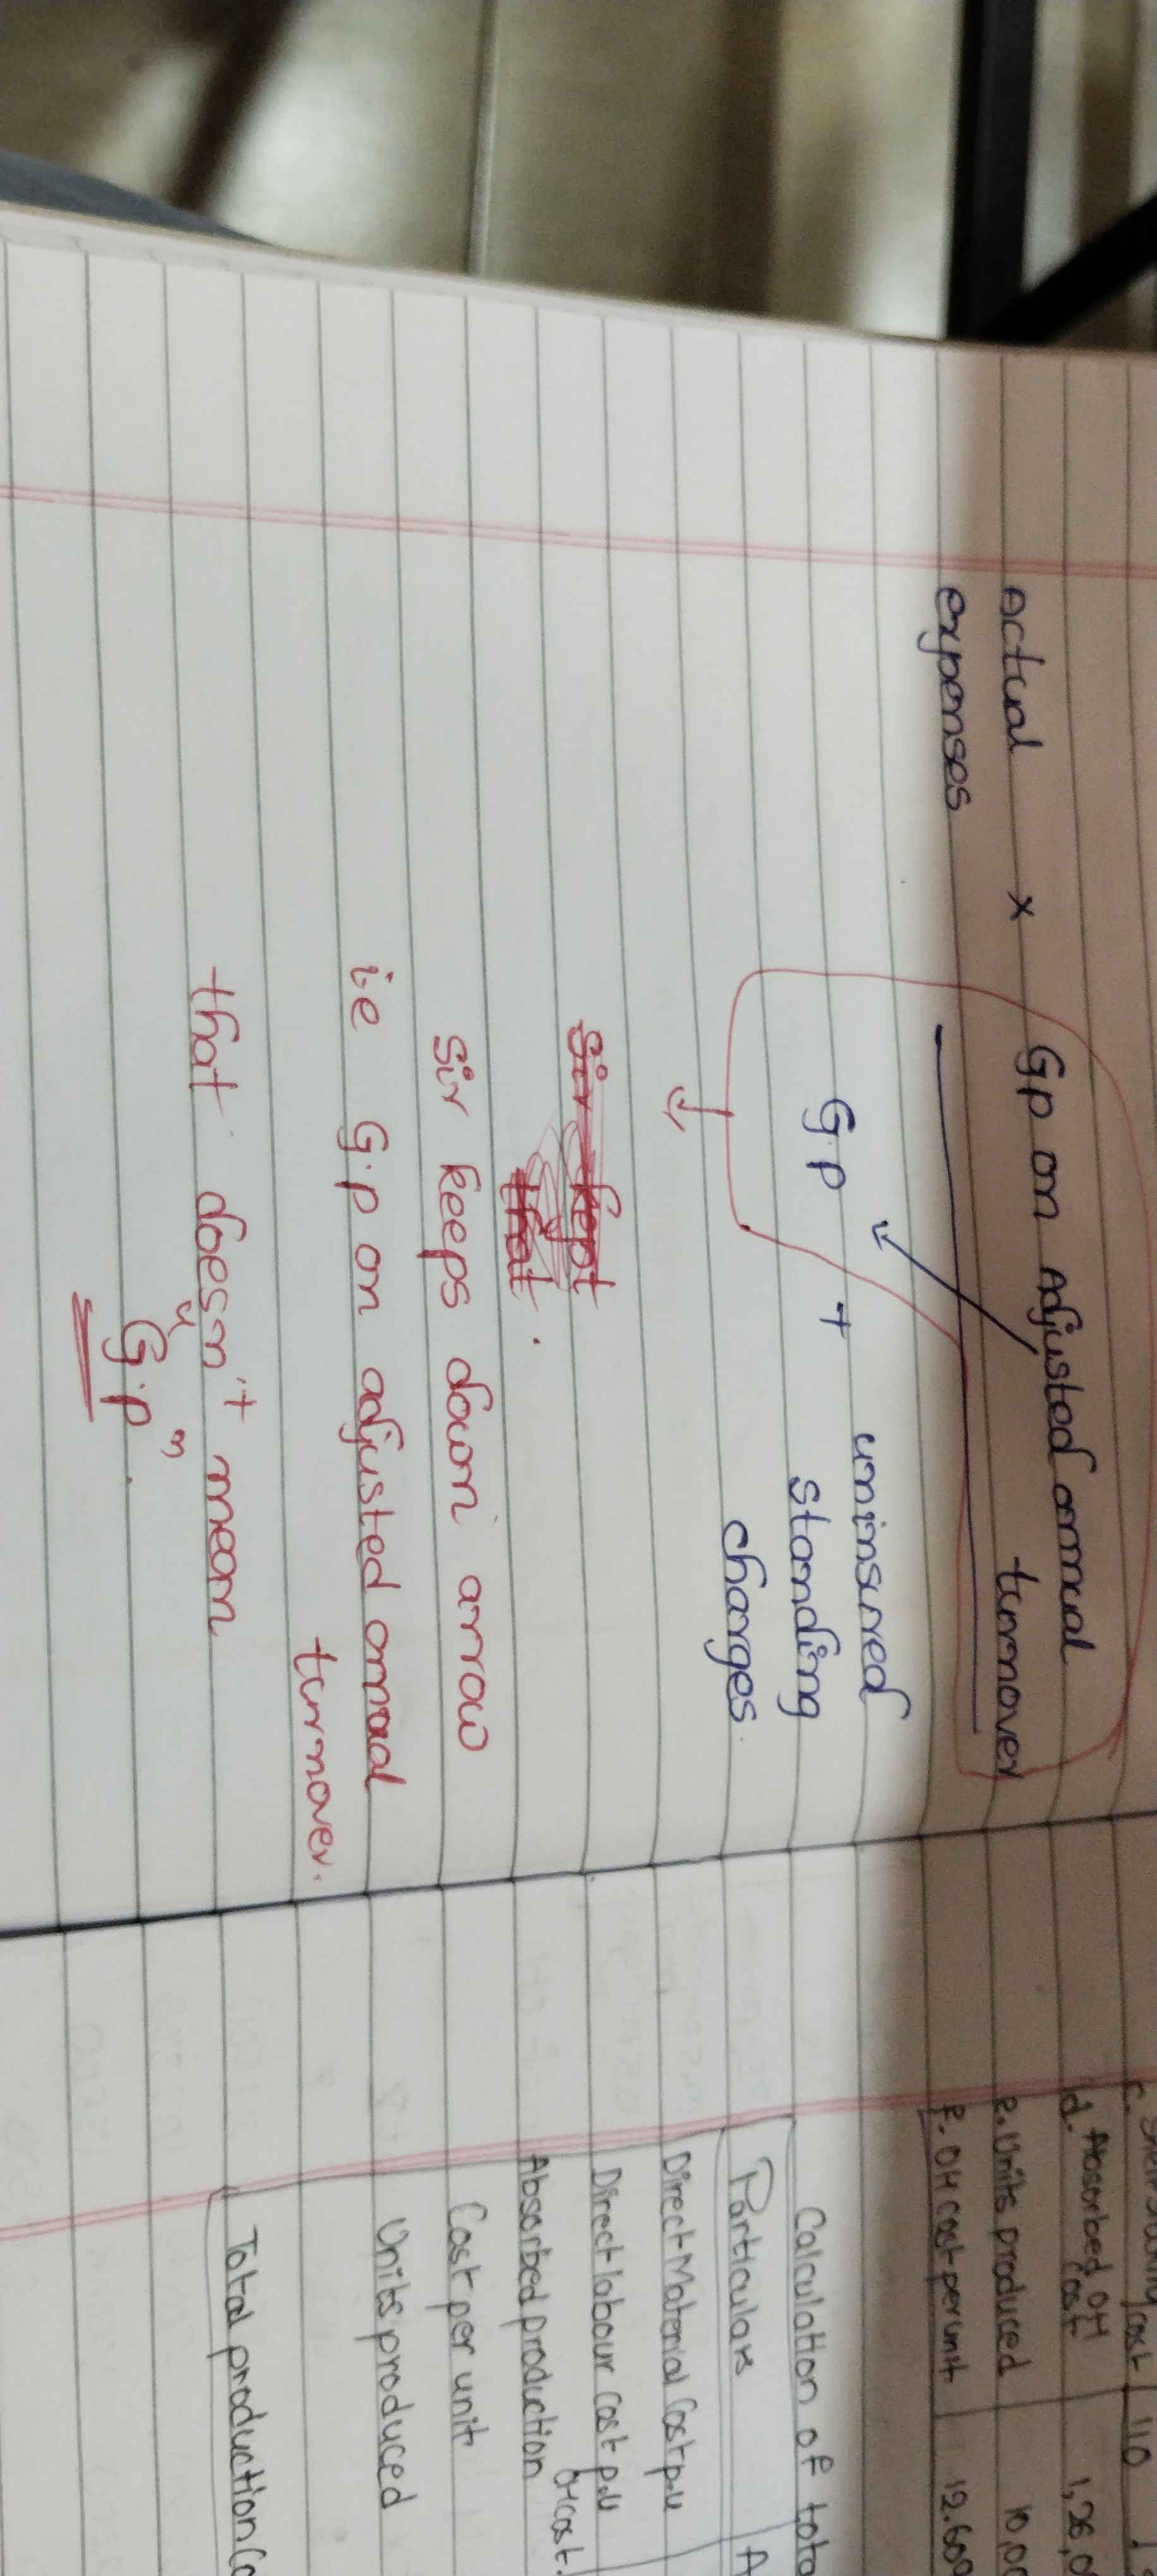 Actual × Gp on Adjusted annual
expenses turnover
G.P + uninsured
standing
charges.
sir kept
that.
sir keeps down arrow
i.e G.p on adjusted annual
turnover.
that doesn't mean
"G.P".
cost 110
d. Absorbed OH 1,26,0
cost
e. Units produced 10,0
F. OH cost per unit 12.600
Calculation of tota
Particulars A
Direct Material Cost p.u
Direct labour cost p.u
Absorbed production OH cost.
Cost per unit
Units produced
Total production Co